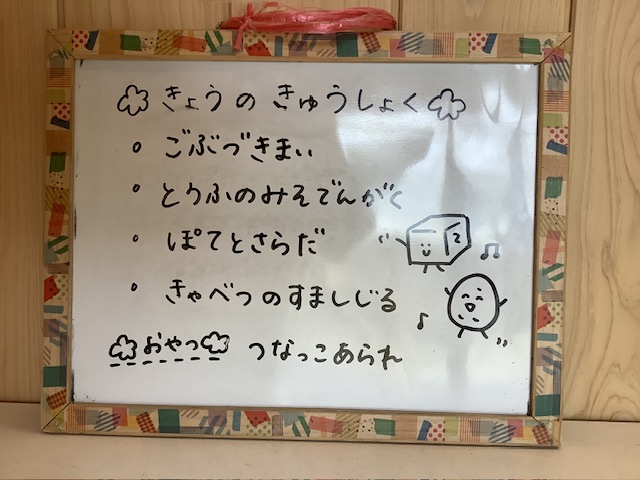 きょうの きゅうしょく
ごぶづきまい
とうふのみそでんがく
ぽてとさらだ
きゃべつのすましじる
おやつ つなっこあられ